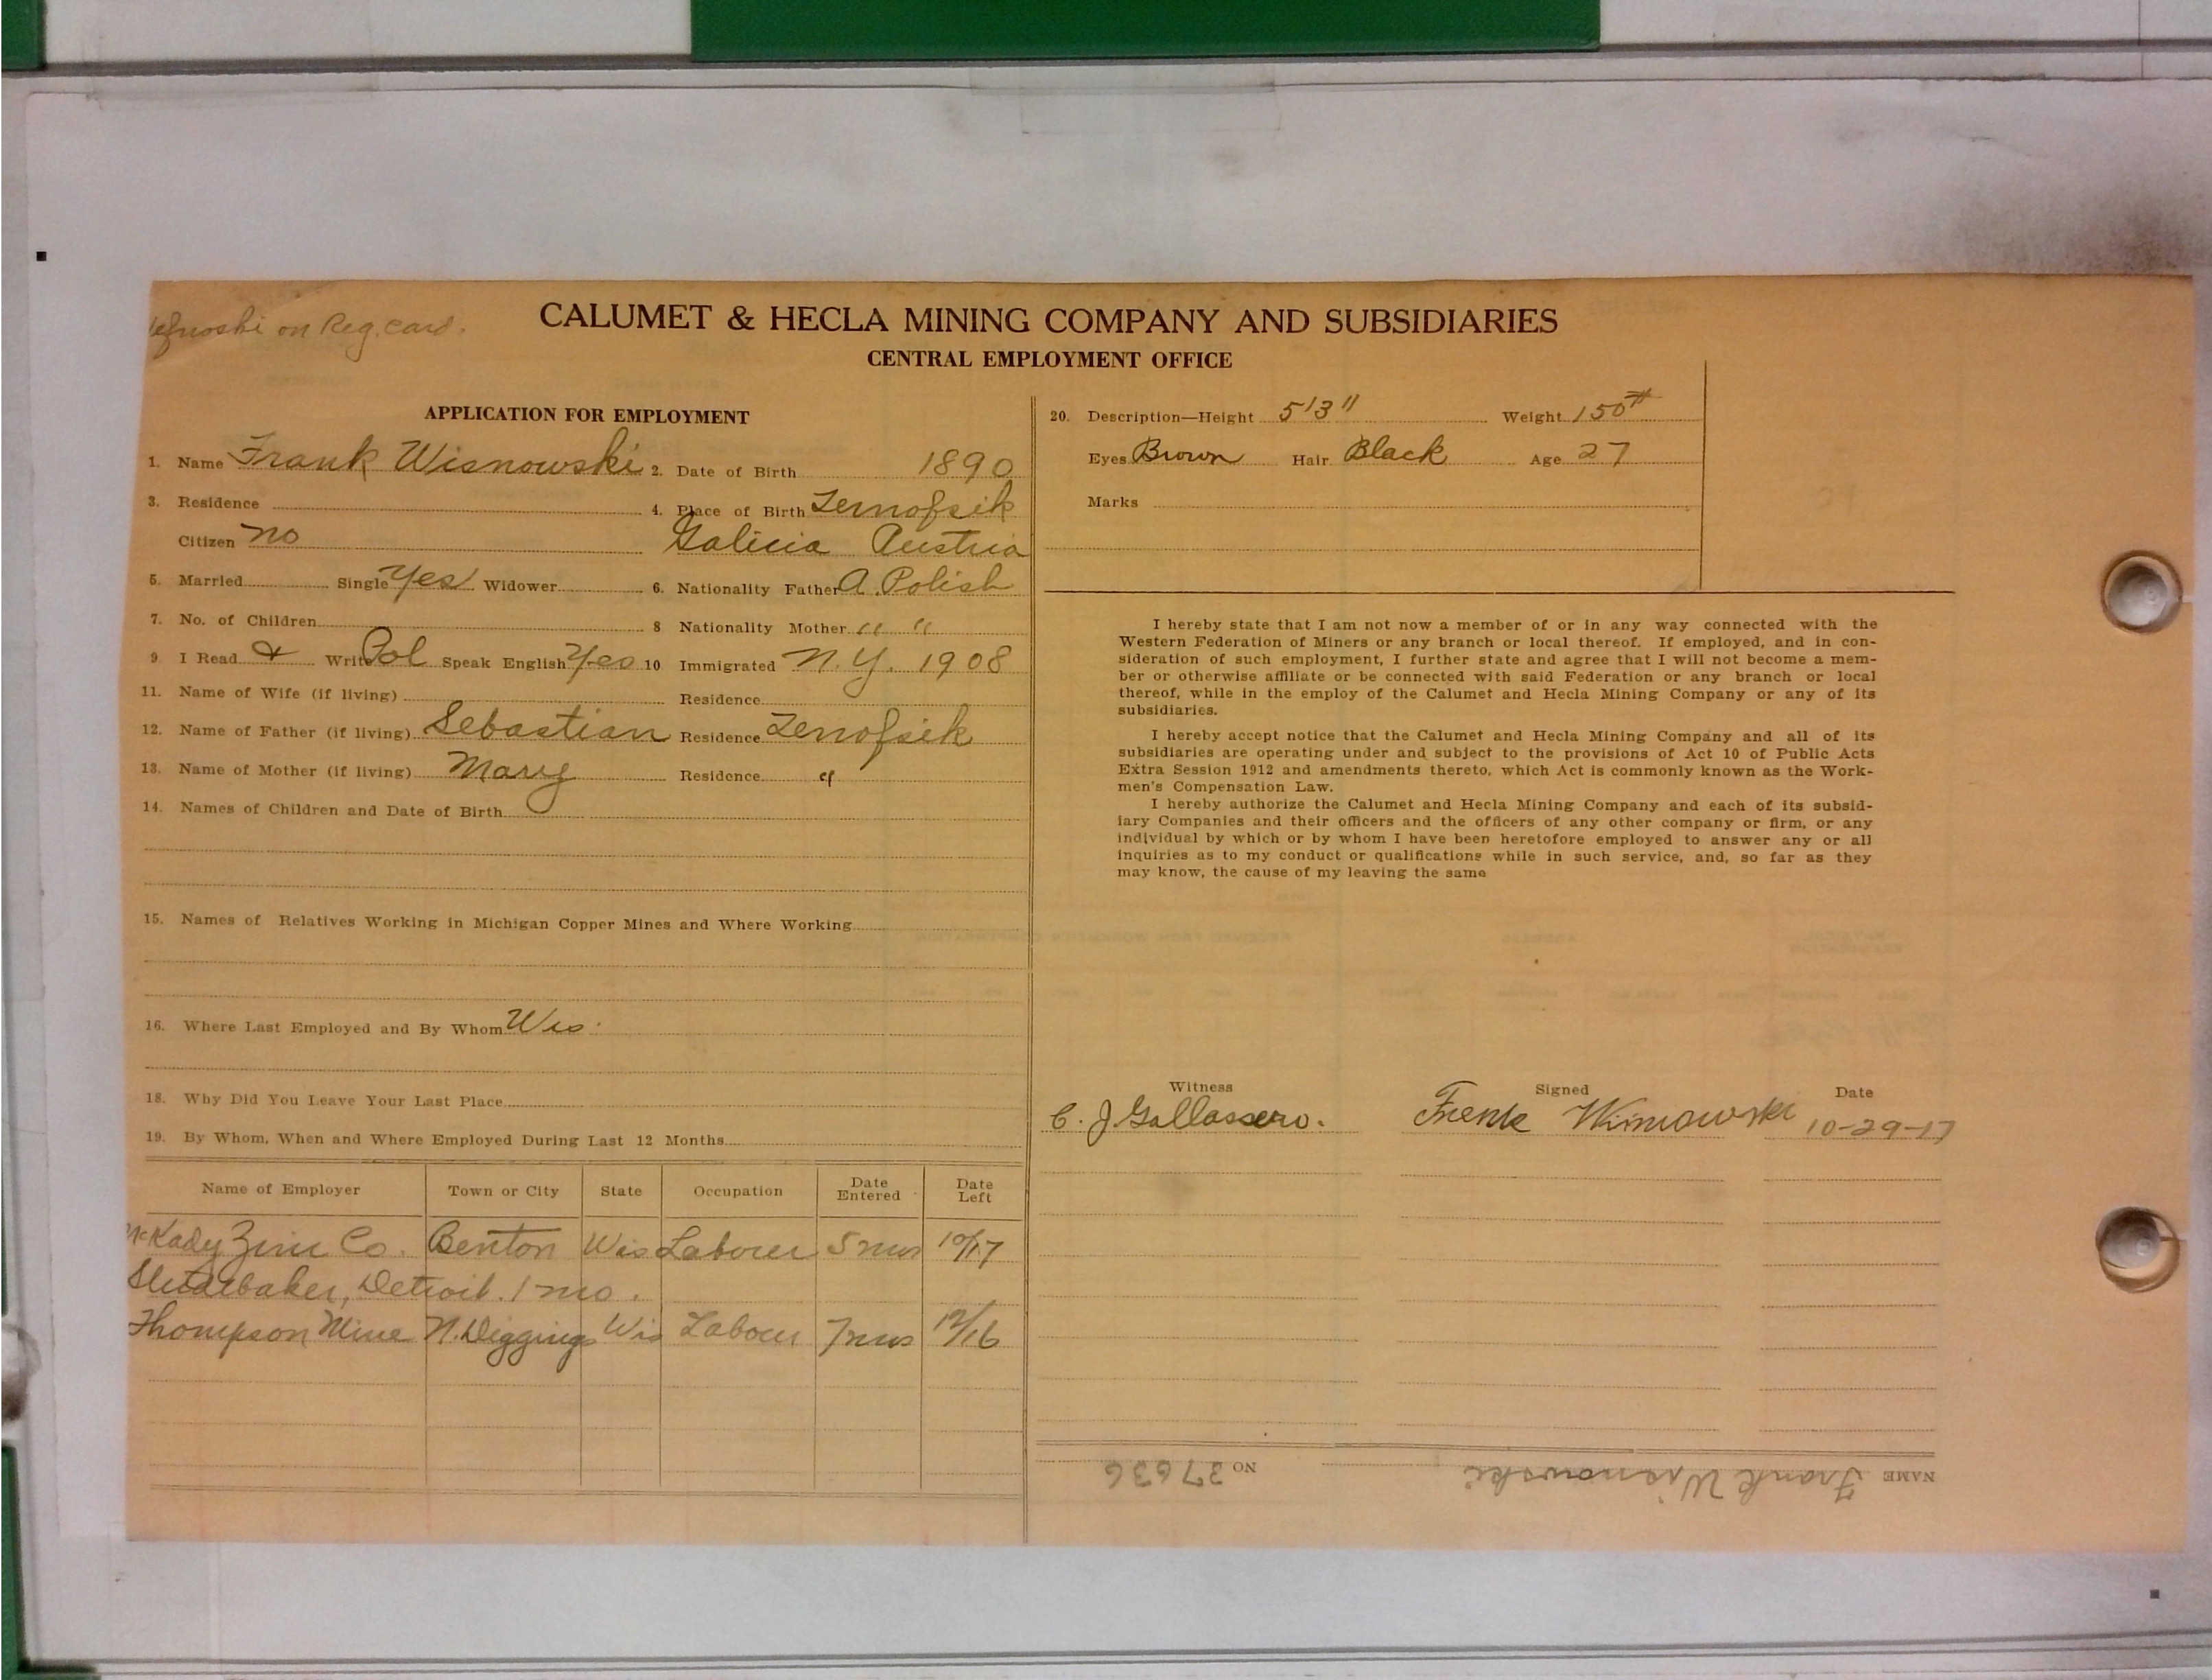 on Reg. card.
CALUMET & HECLA MINING COMPANY AND SUBSIDIARIES
CENTRAL EMPLOYMENT OFFICE
APPLICATION FOR EMPLOYMENT
1. Name Frank Wisnowski 2. Date of Birth 1890
3. Residence 4. Place of Birth Zernofsik
Citizen no Galicia Austria
5. Married Single Yes Widower 6. Nationality Father A. Polish
7. No. of Children 8 Nationality Mother " "
9 I Read & Write Pol Speak English Yes 10 Immigrated N.Y. 1908
11. Name of Wife (if living) Residence
12. Name of Father (if living) Sebastian Residence Zenofsik
13. Name of Mother (if living) Mary Residence "
14. Names of Children and Date of Birth
15. Names of Relatives Working in Michigan Copper Mines and Where Working
16. Where Last Employed and By Whom Wis.
18. Why Did You Leave Your Last Place
19. By Whom, When and Where Employed During Last 12 Months
Name of Employer Town or City State Occupation Date Entered Date Left
McKady Zinc Co. Benton Wis Laborer 5 mos 10/17
Studebaker, Detroit. 1 mo.
Thompson Mine N. Diggings Wis Laborer 7 mos 12/16
20. Description—Height 5'3" Weight 150#
Eyes Brown Hair Black Age 27
Marks
I hereby state that I am not now a member of or in any way connected with the
Western Federation of Miners or any branch or local thereof. If employed, and in con-
sideration of such employment, I further state and agree that I will not become a mem-
ber or otherwise affiliate or be connected with said Federation or any branch or local
thereof, while in the employ of the Calumet and Hecla Mining Company or any of its
subsidiaries.
I hereby accept notice that the Calumet and Hecla Mining Company and all of its
subsidiaries are operating under and subject to the provisions of Act 10 of Public Acts
Extra Session 1912 and amendments thereto, which Act is commonly known as the Work-
men's Compensation Law.
I hereby authorize the Calumet and Hecla Mining Company and each of its subsid-
iary Companies and their officers and the officers of any other company or firm, or any
individual by which or by whom I have been heretofore employed to answer any or all
inquiries as to my conduct or qualifications while in such service, and, so far as they
may know, the cause of my leaving the same
Witness Signed Date
C. J. Gallassero. Frenk Wisnowski 10-29-17
NAME Frank Wisnowski NO 37636